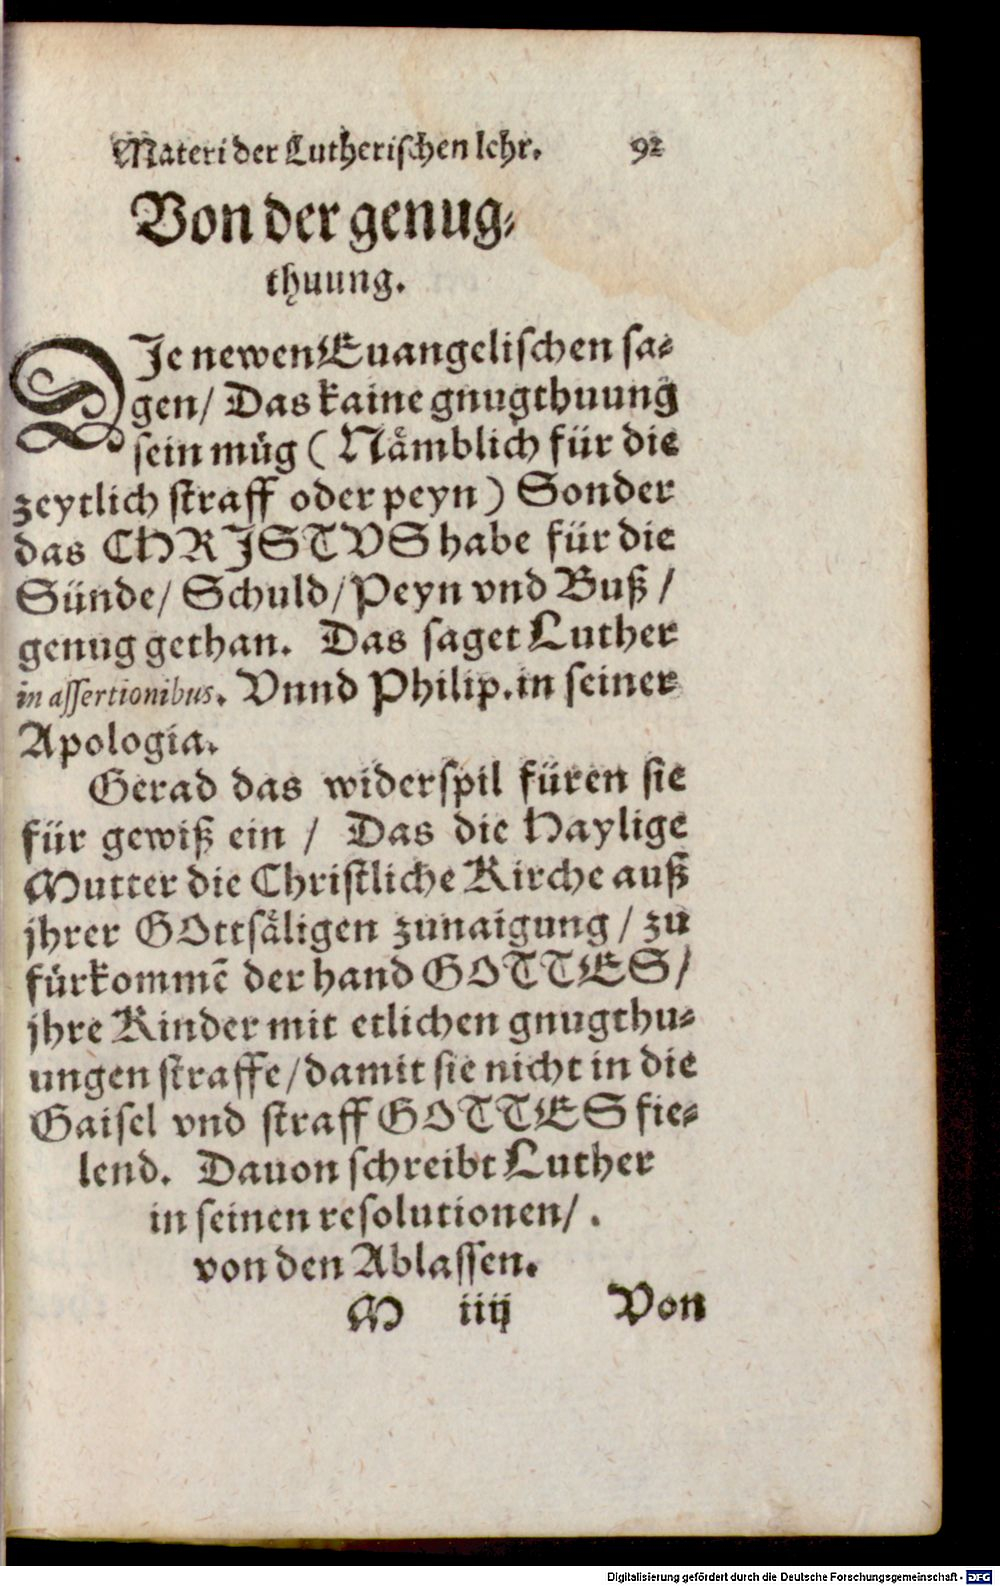 Materi der Lutherischen lehr. 92
Von der genug⸗
thuung.
DJe newen Euangelischen sa⸗
gen/ Das kaine gnugthuung
sein müg ( Nåmblich für die
zeytlich straff oder peyn ) Sonder
das CHRJSTVS habe für die
Sünde/ Schuld/ Peyn vnd Buß /
genug gethan. Das saget Luther
in assertionibus. Vnnd Philip. in seiner
Apologia.
Gerad das widerspil füren sie
für gewiß ein / Das die Haylige
Mutter die Christliche Kirche auß
jhrer GOttsåligen zunaigung / zu
fürkommē der hand GOTTES /
jhre Kinder mit etlichen gnugthu⸗
ungen straffe / damit sie nicht in die
Gaisel vnd straff GOTTES fie⸗
lend. Dauon schreibt Luther
in seinen resolutionen / .
von den Ablassen.
M iiij Von
Digitalisierung gefördert durch die Deutsche Forschungsgemeinschaft - DFG